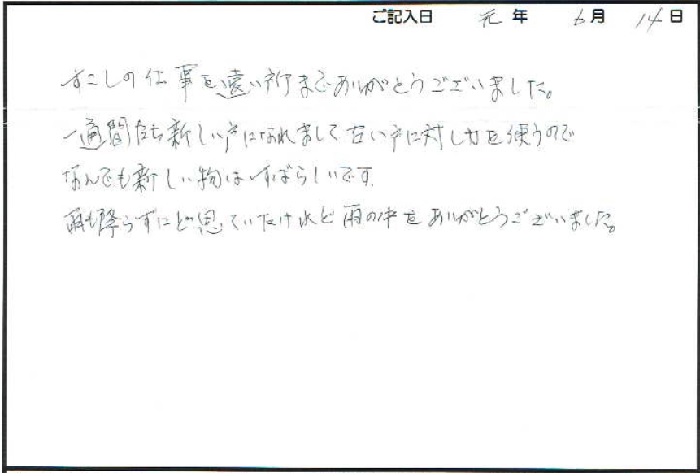 ご記入日 元年 6月 14日
すこしの仕事を遠い所までありがとうございました。
一週間たち新しい戸になれまして古い戸に対し力を使うので
なんでも新しい物はすばらしいです
雨も降らずにと思っていたけれど雨の中をありがとうございました。